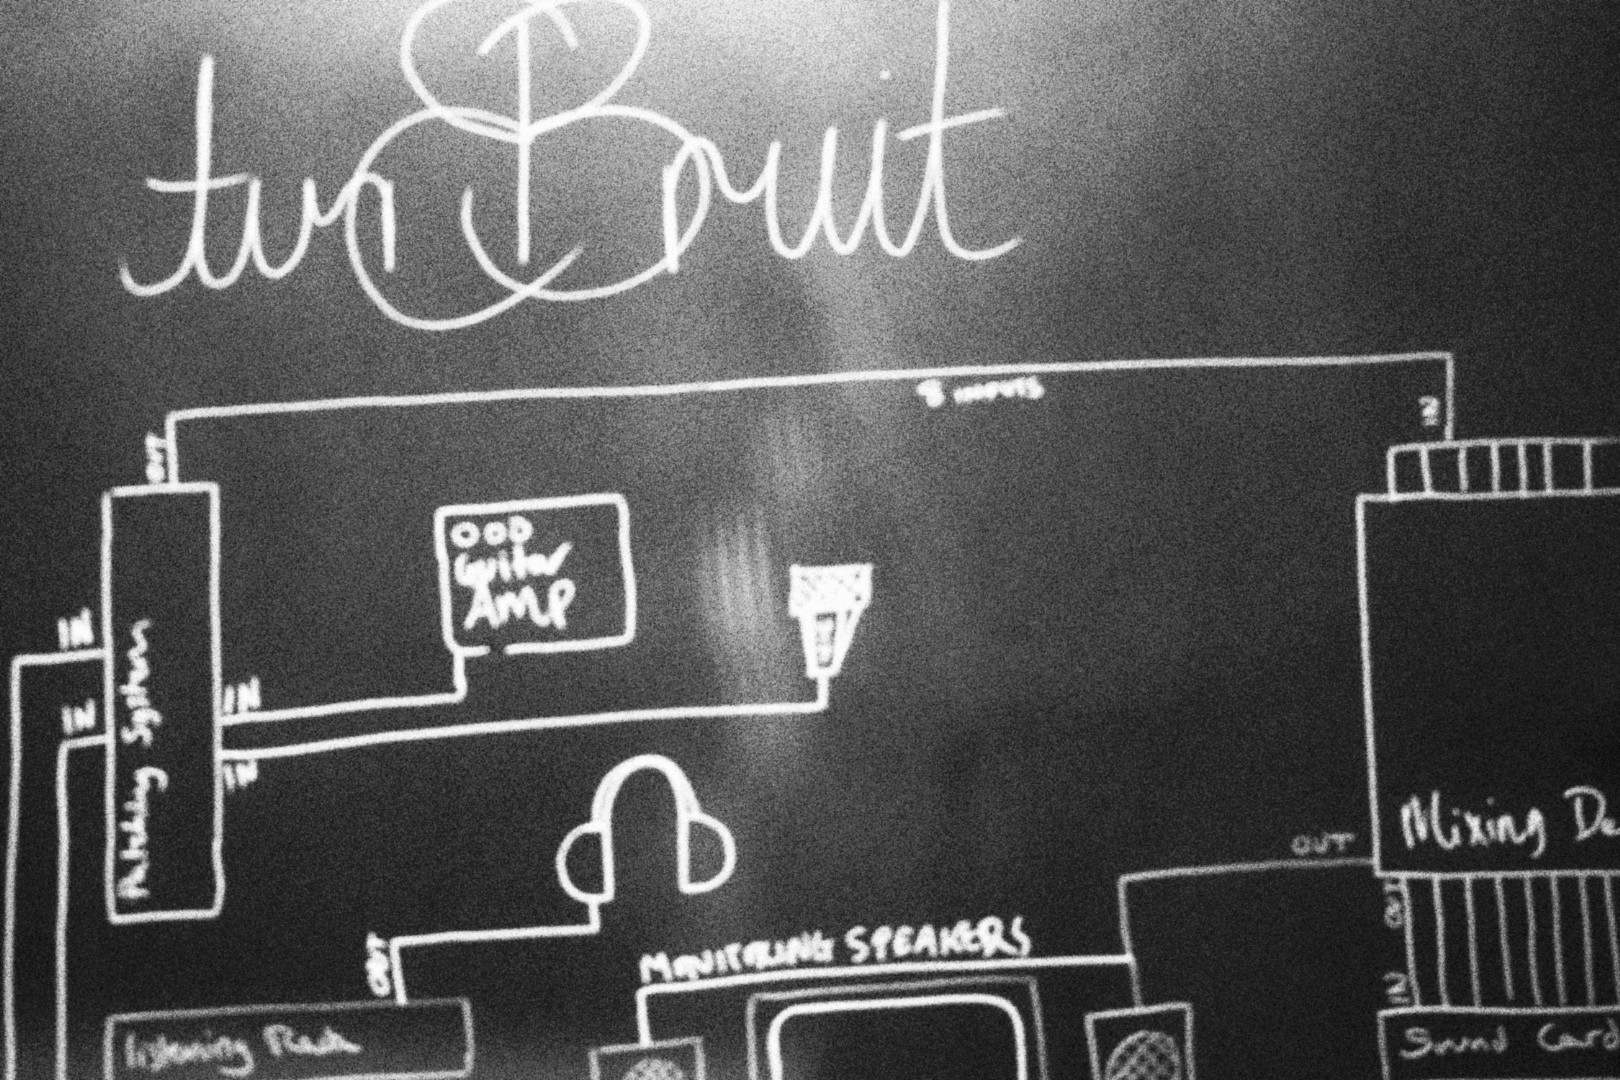 8 inputs
OUT
IN
Guitar
AMP
IN
IN
IN
IN
System
Mixing De
OUT
OUT
MONITORING SPEAKERS
OUT
IN
Listening Rack
Sound Card